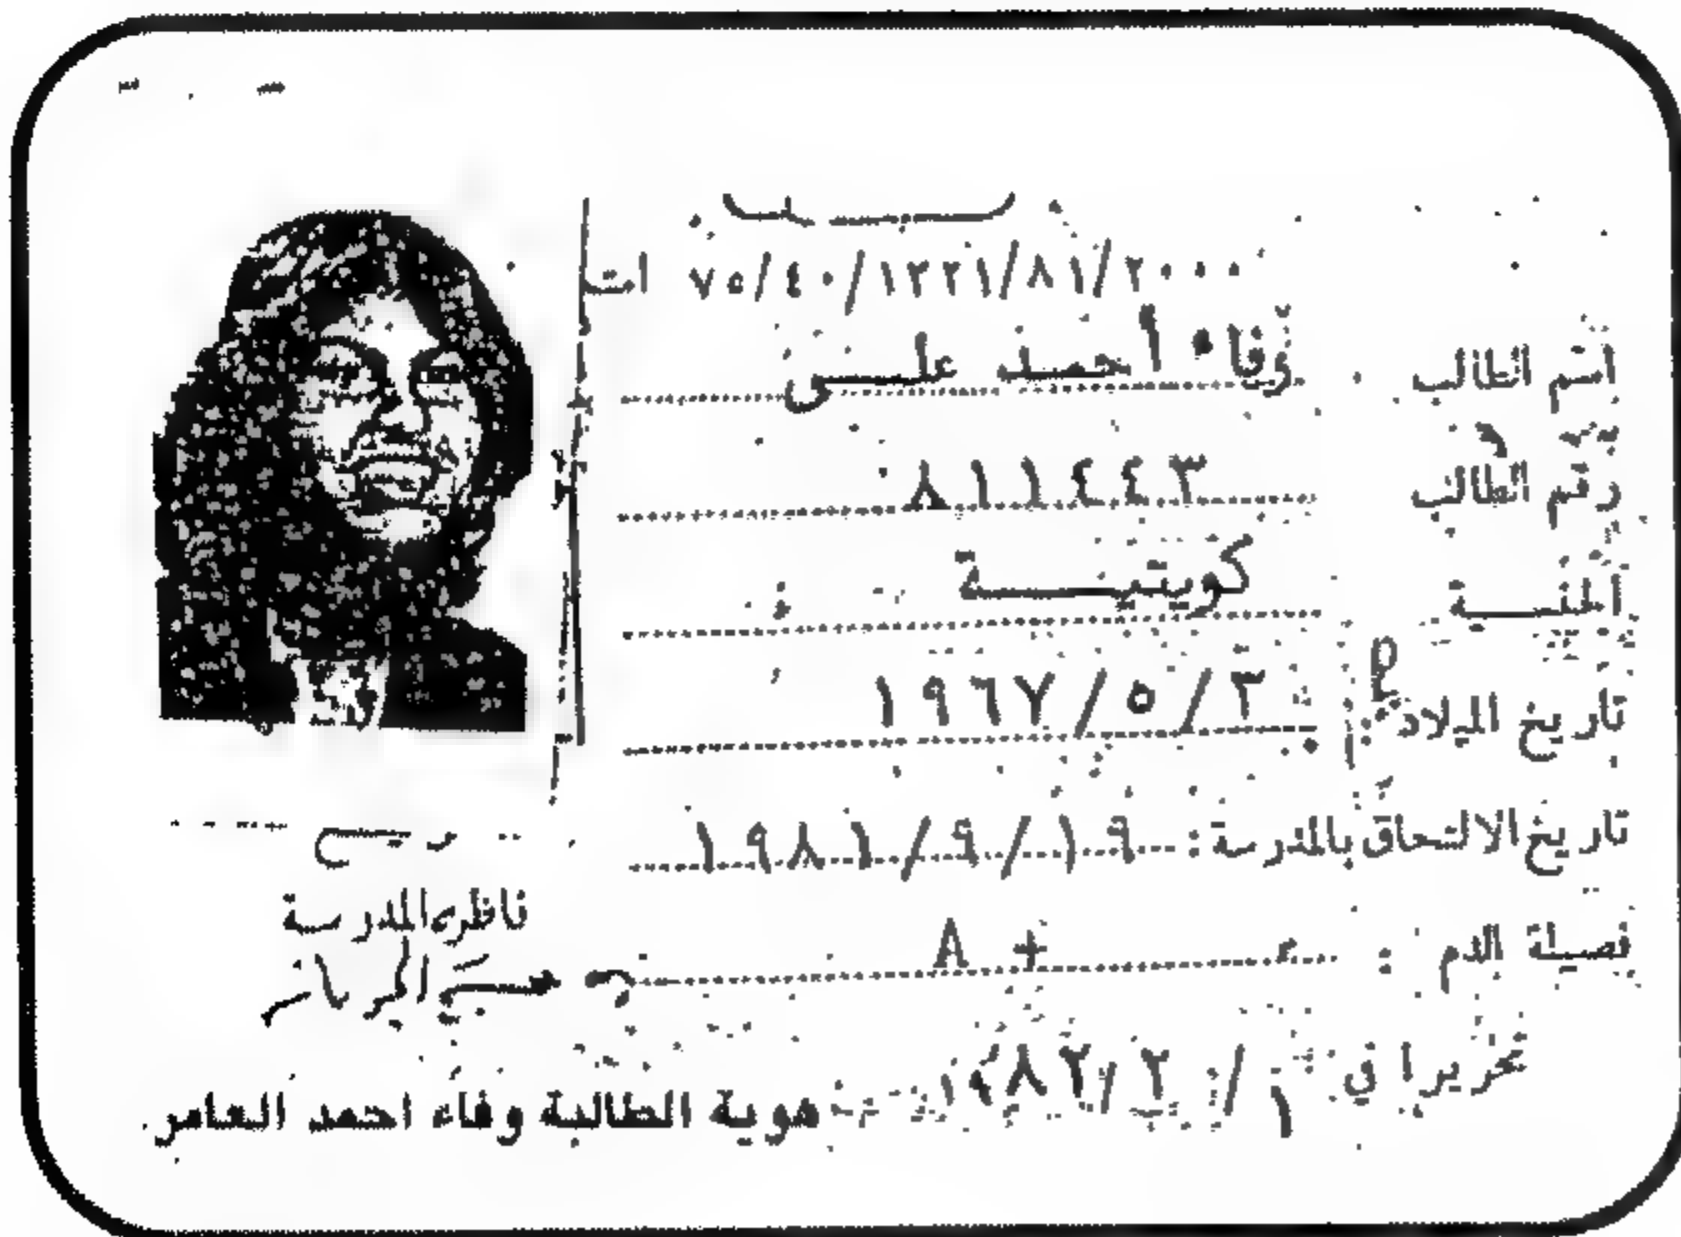 ٧٥/٤٠/١٢٢١/٨١/٢٠٠٠ ات
اسم الطالب وفاء أحمد علي
رقم الطالب ٨١١٤٤٣
الجنسية كويتية
تاريخ الميلاد : ٣ / ٥ / ١٩٦٧
تاريخ الالتحاق بالمدرسة : ١٩ / ٩ / ١٩٨١
ناظرة المدرسة
فصيلة الدم : A +
تحريرا في ١ / ٢ / ١٩٨٢
هوية الطالبة وفاء احمد العامر